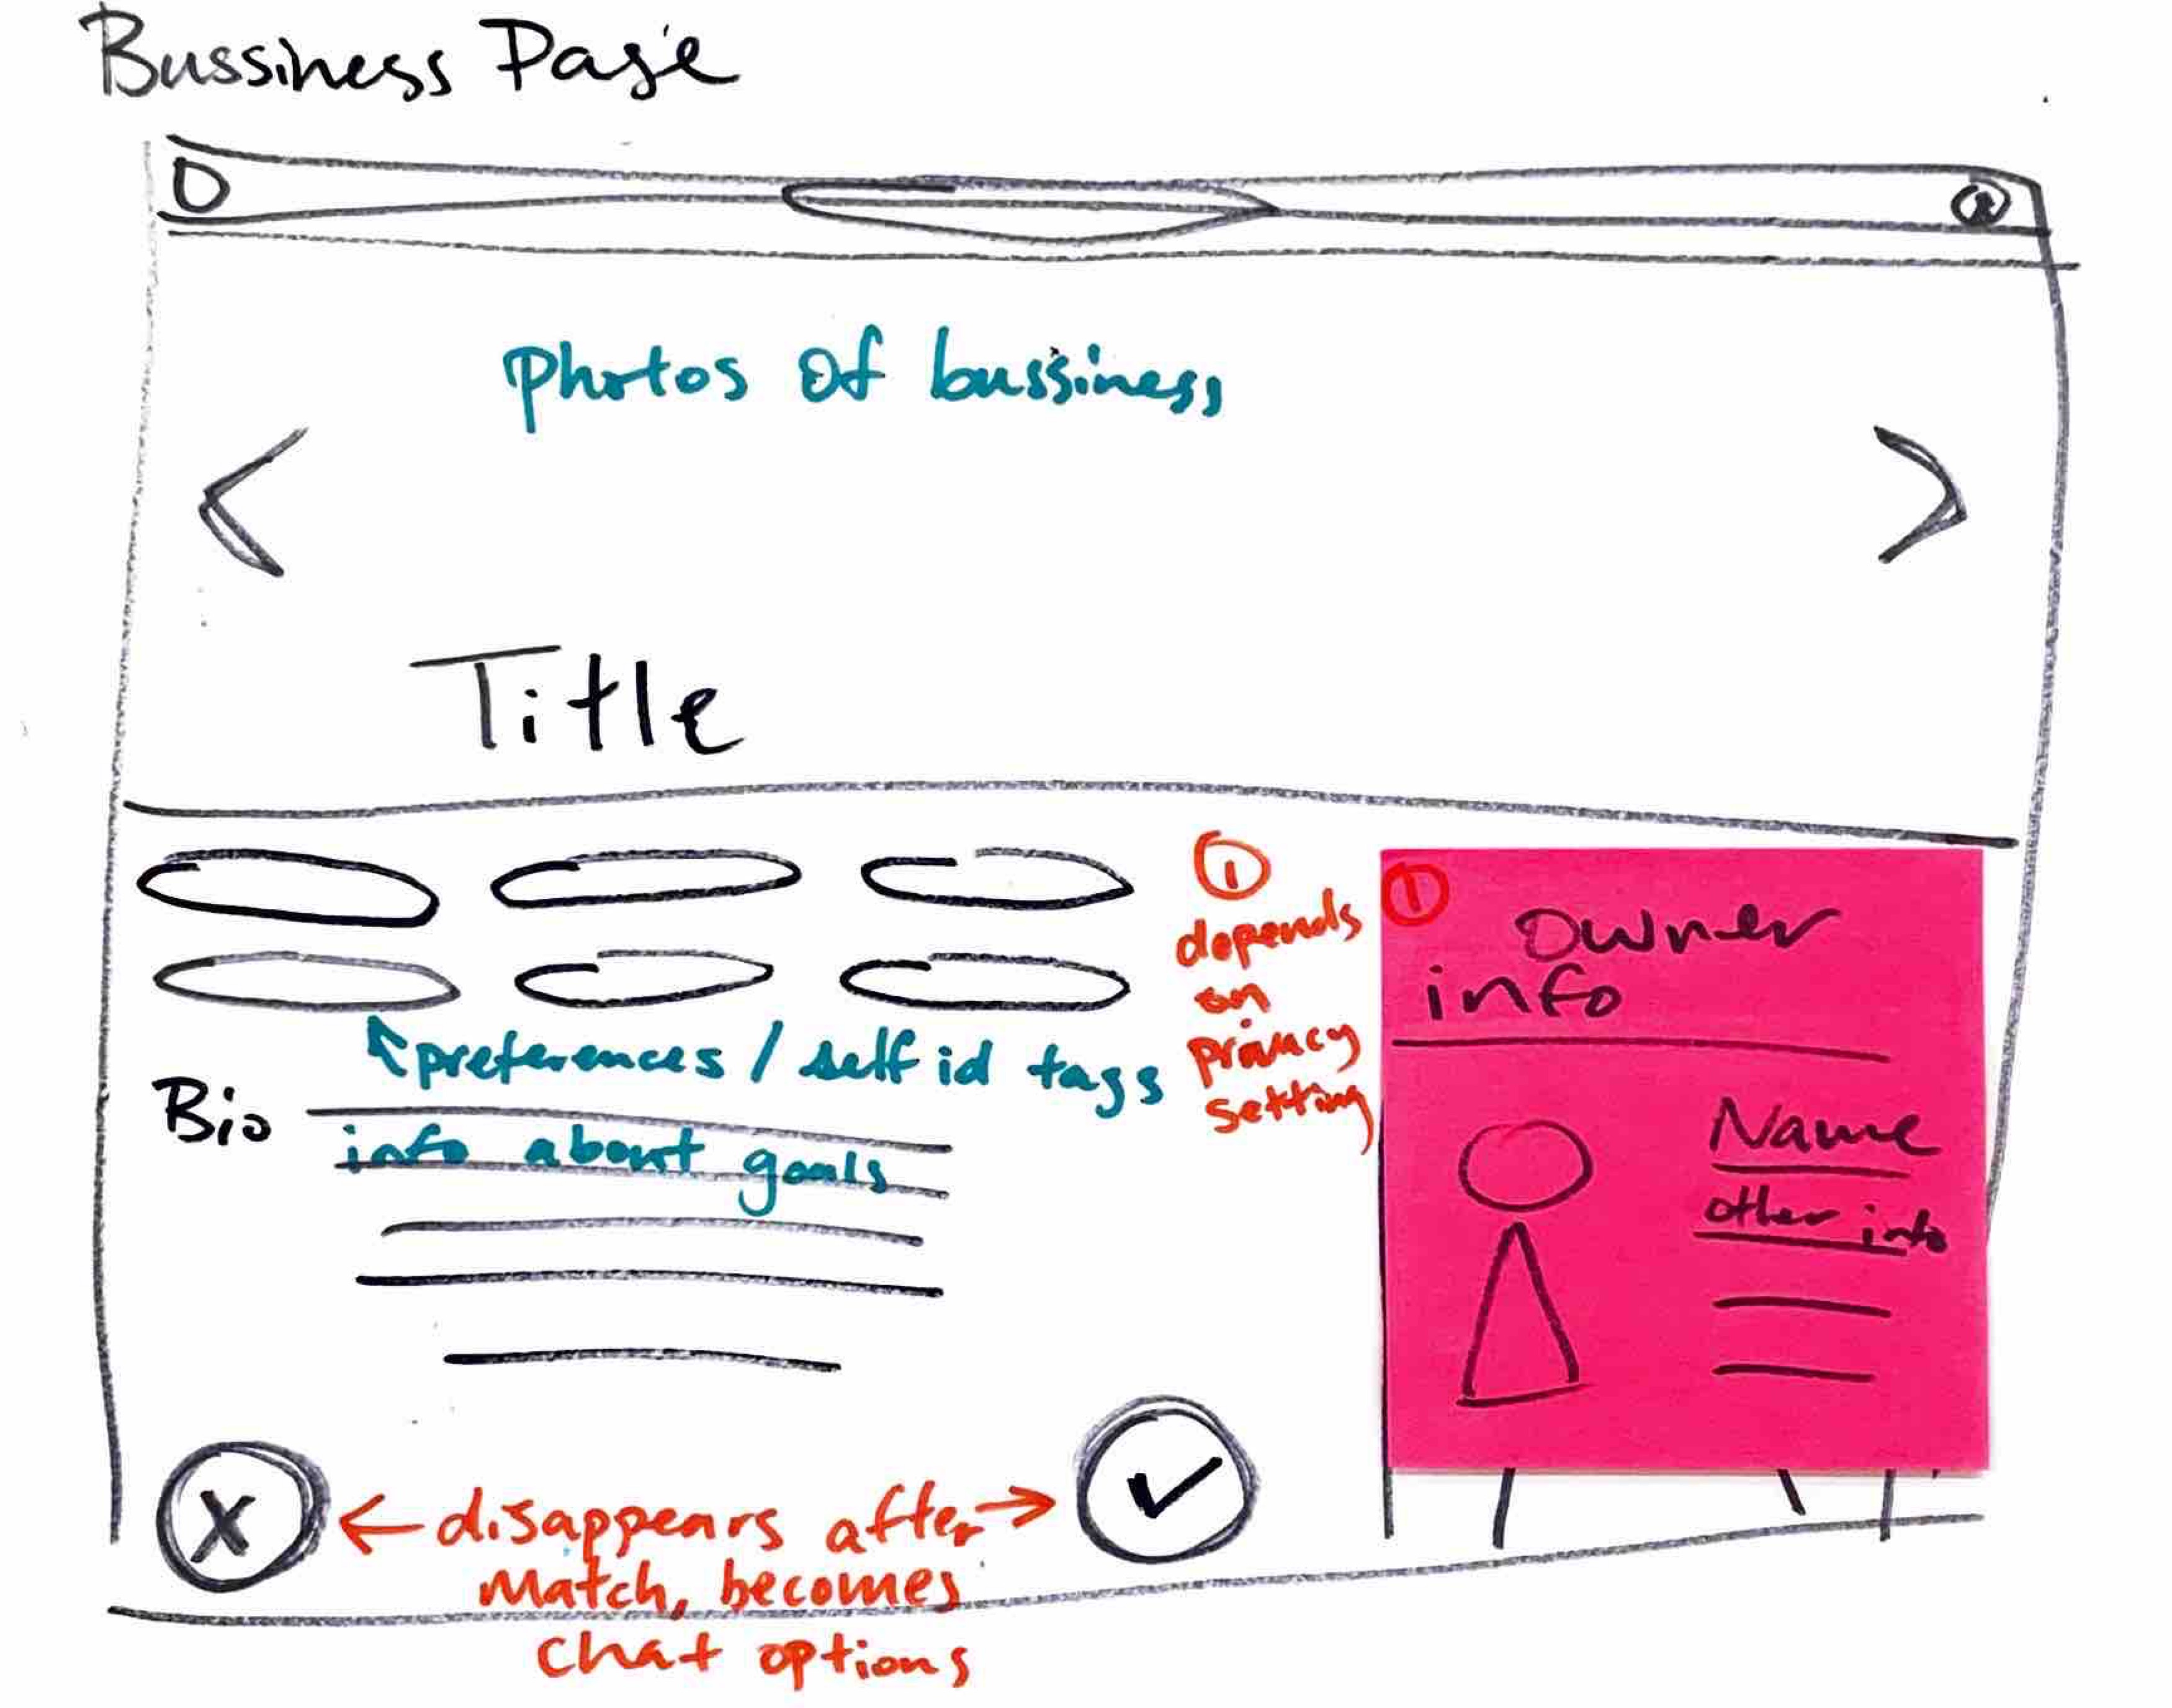 Bussiness Page
photos of bussiness
Title
preferences / self id tags
Bio
info about goals
1
depends
on
privacy
setting
1
Owner
info
Name
other info
X
← disappears after →
Match, becomes
chat options